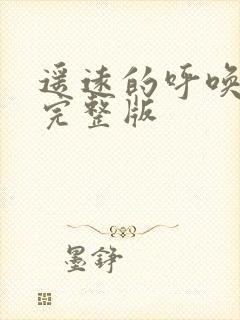 遥远的呼唤
完整版
墨铮